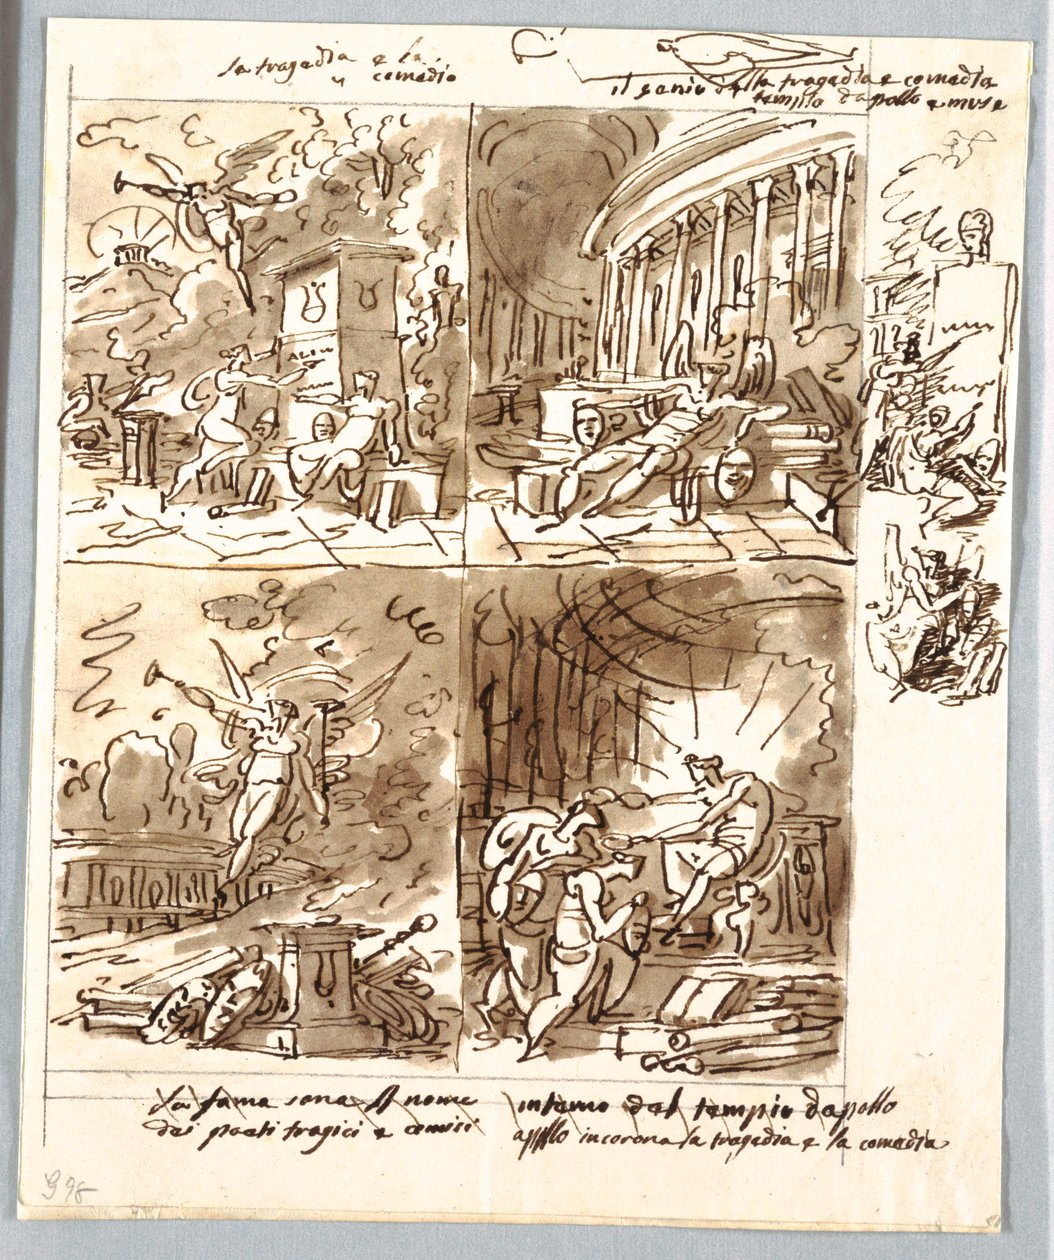 la tragedia e la
comedia
il genio della tragedia e comedia
tempio d'apollo e muse
la fama sona il nome
dei poeti tragici e comici
interno del tempio d'apollo
apollo incorona la tragedia e la comedia
G 98